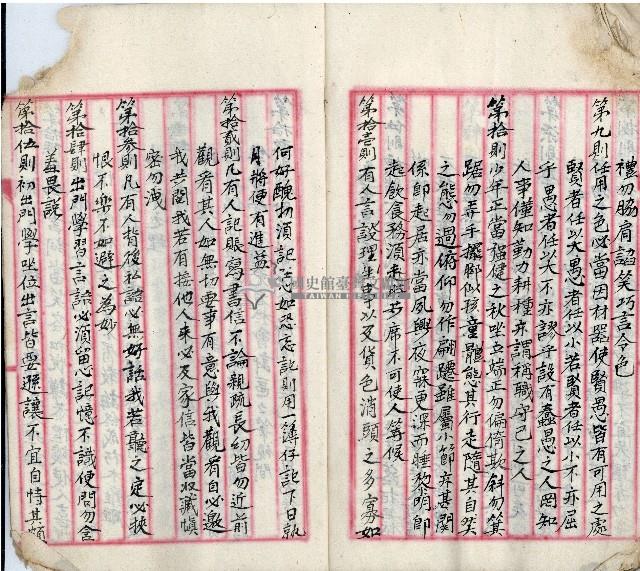 禮勿脇肩諂笑巧言令色
第九則任用之色必當因材器使賢愚皆有可用之處
賢者任以大愚者任以小若賢者任以小不亦屈
乎愚者任以大不亦謬乎設有蠢愚之人罔知
人事僅知勤力耕種亦謂稱職守己之人
第拾則少年正當強健之秋坐立端正勿偏倚欹斜勿箕
踞勿弄手擺腳似孩童體態其行走隨其自然
之態勿過俯仰勿作翩躚雖屬小節亦甚関
係即起居亦當夙興夜寐更深而睡黎明即
起飲食務須来
席不可使人等候
第拾壹則有人言談理生事以及貨色消頭之多寡如
何好醜均須記忘如恐忘記則用一簿仔記下日執
月將便有進益
第拾貳則凡有人記賬寫書信不論親疏長幼皆勿近前
觀看其人如無切要事有意與我觀看自必邀
我共閱我若有接他人来必及家信皆當收藏慎
密勿洩
第拾參則凡有人背後私語必無好話我若聽之定必挾
恨不樂不如避之為妙
第拾肆則出門學習言語必須留心記憶不識便問勿含
羞畏説
第拾伍則初出門學坐位出言皆要遜讓不宜自恃其
國史館臺灣
TAIWAN